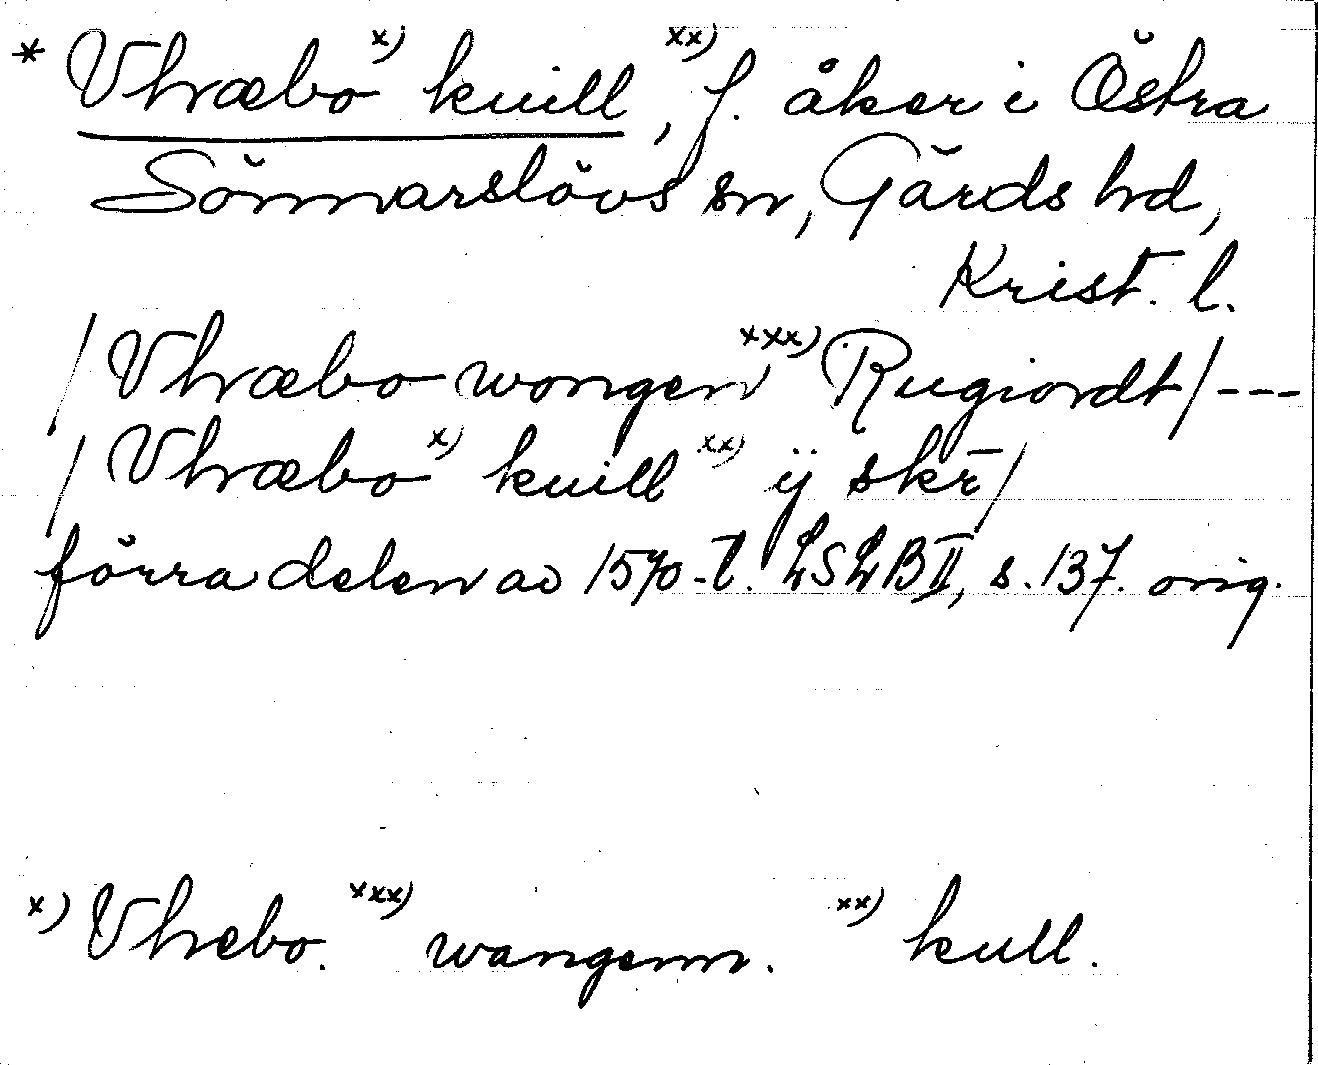 * Vhræbo x) kuill xx), f. åker i Östra
Sönnarslövs sn, Gärds hd,
Krist. l.
/Vhræbo wongen xxx) Rugiordt/---
/Vhræbo x) kuill xx) ÿ skr̄/
förra delen av 1570-t. LSLB II, s. 137. orig.
x) Vhrebo. xxx) wangenn. xx) kull.